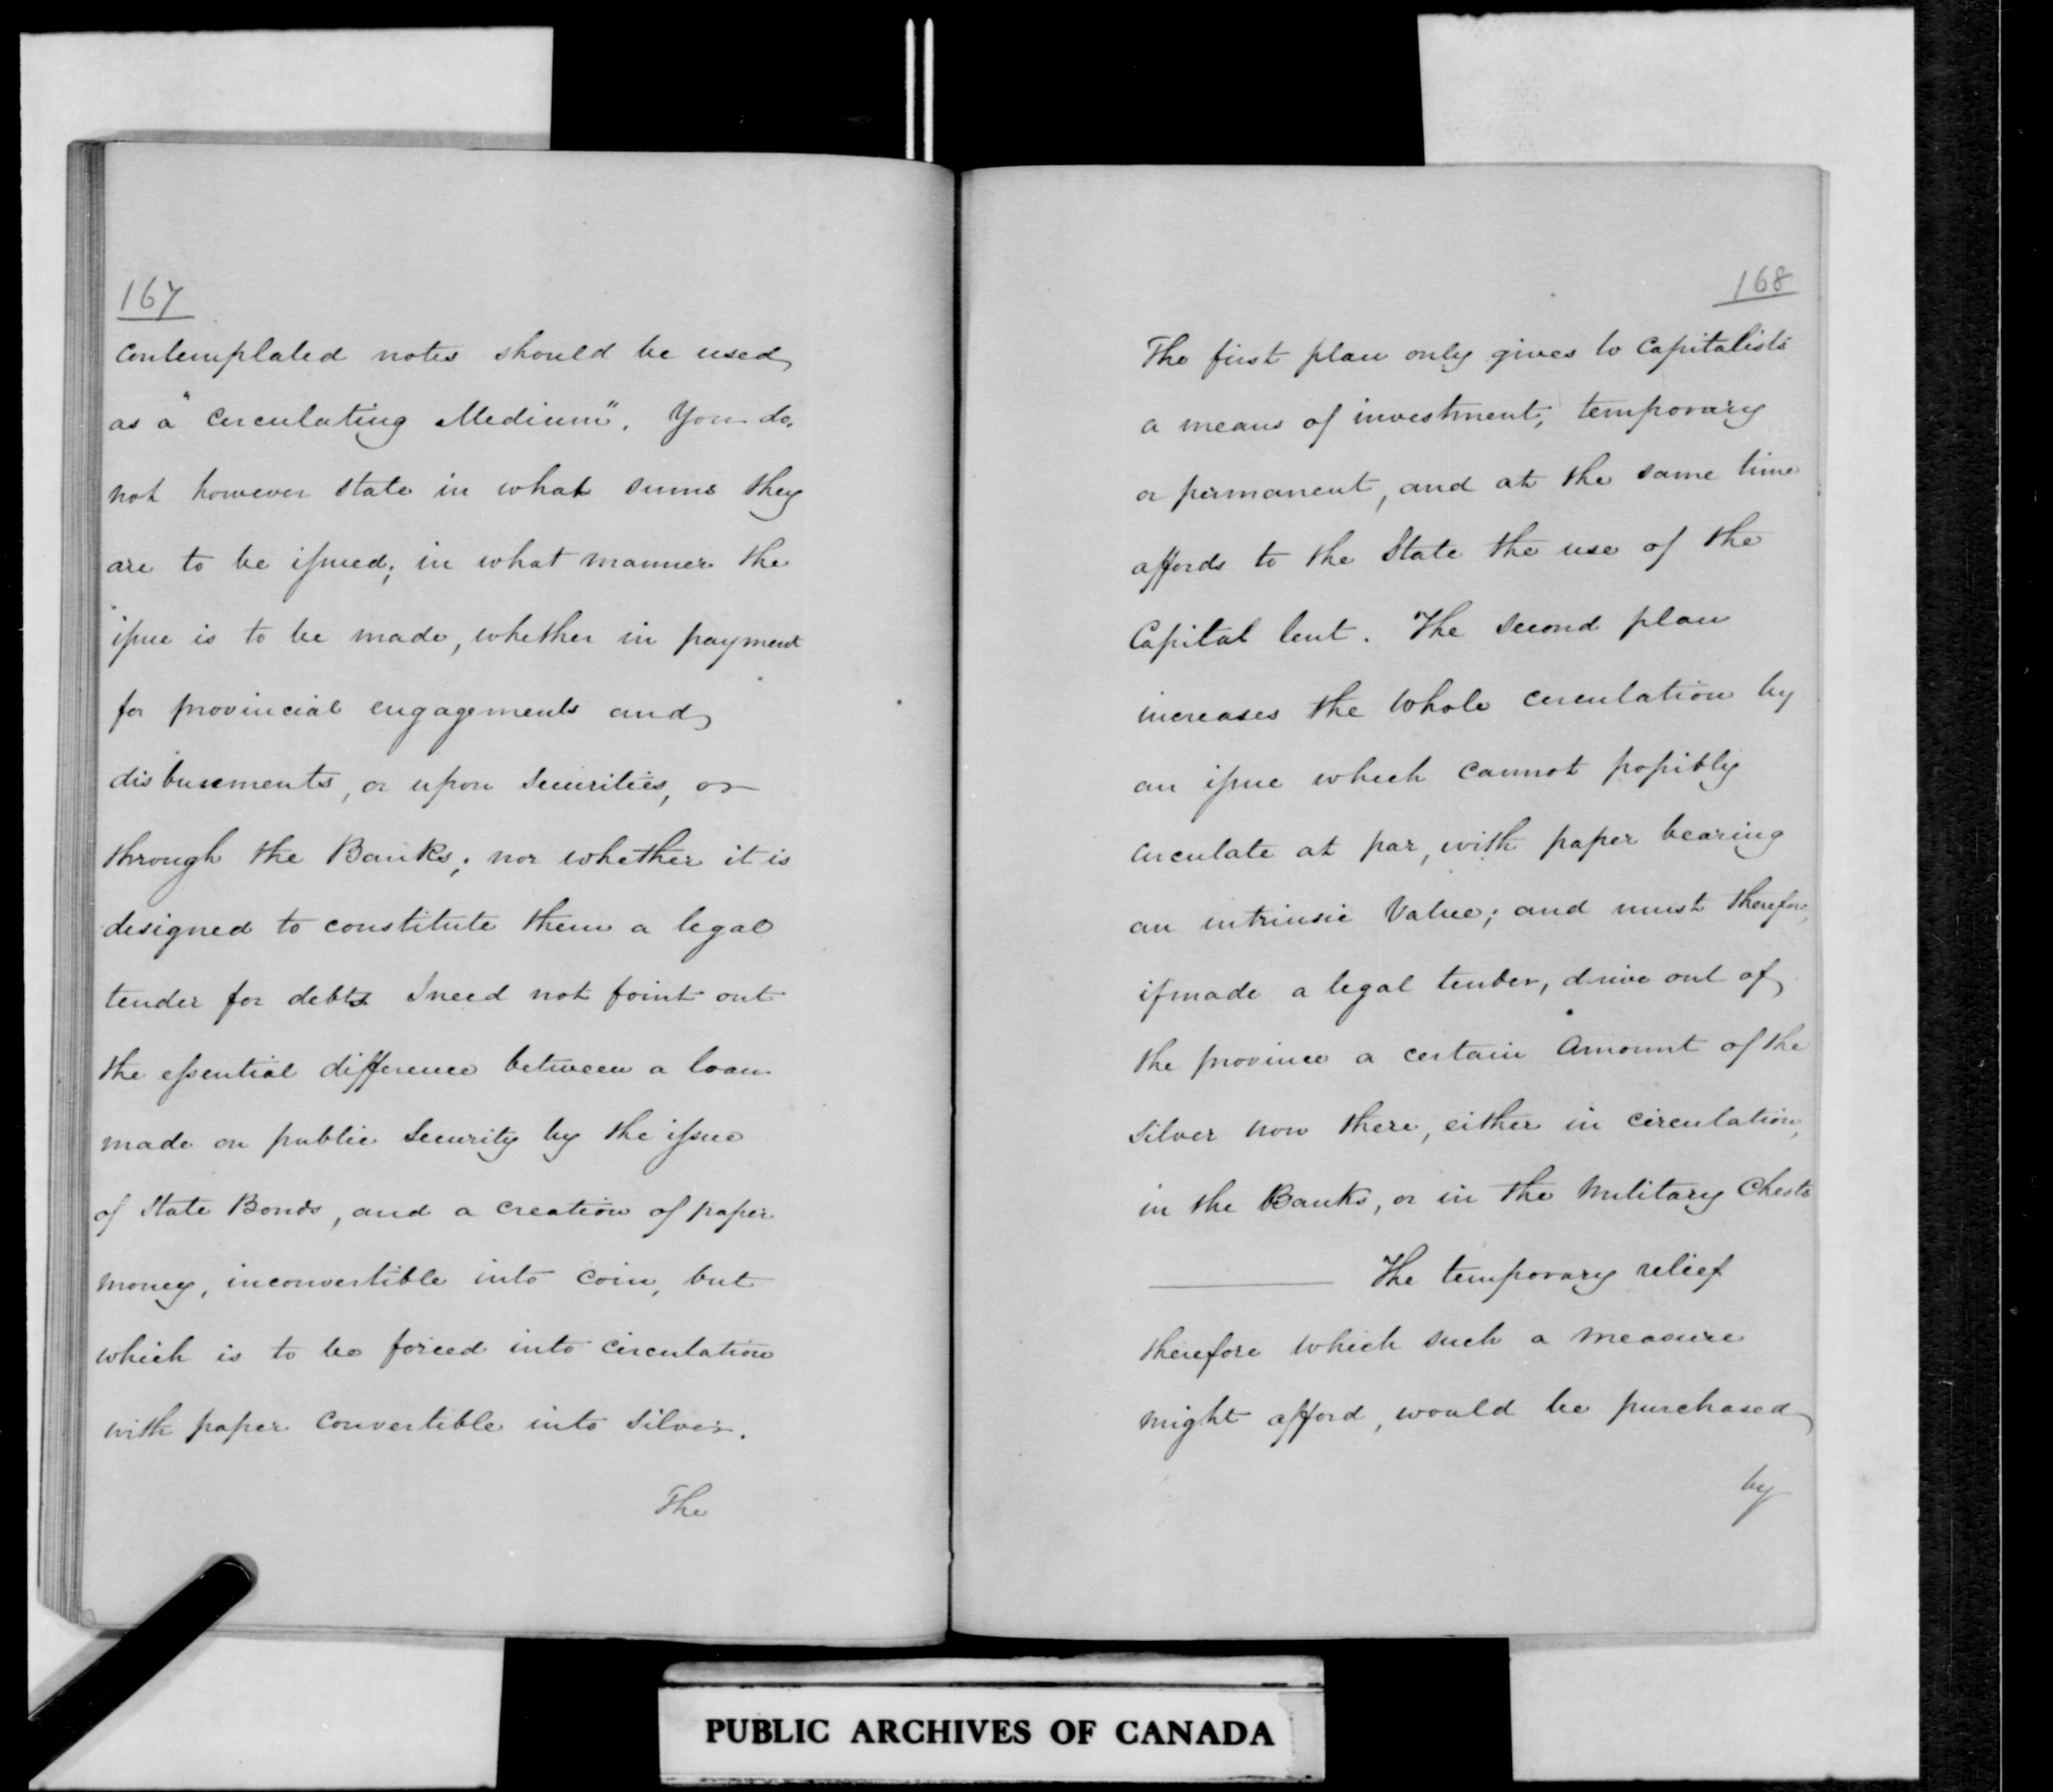 167
Contemplated notes should be used
as a "Circulating Medium". You do
not however state in what sums they
are to be issued; in what manner the
issue is to be made, whether in payment
for provincial engagements and
disbursements, or upon Securities, or
through the Banks; nor whether it is
designed to constitute them a legal
tender for debts I need not point out
the essential difference between a loan
made on public Security by the issue
of State Bonds, and a creation of paper
money, inconvertible into Coin, but
which is to be forced into circulation
with paper Convertible into Silver.
The
168
The first plan only gives to Capitalists
a means of investment, temporary
or permanent, and at the same time
affords to the State the use of the
Capital lent. The second plan
increases the whole circulation by
an issue which cannot possibly
circulate at par, with paper bearing
an intrinsic Value; and must therefore,
if made a legal tender, drive out of
the province a certain Amount of the
Silver now there, either in circulation,
in the Banks, or in the Military Chests
The temporary relief
therefore which such a measure
might afford, would be purchased
by
PUBLIC ARCHIVES OF CANADA